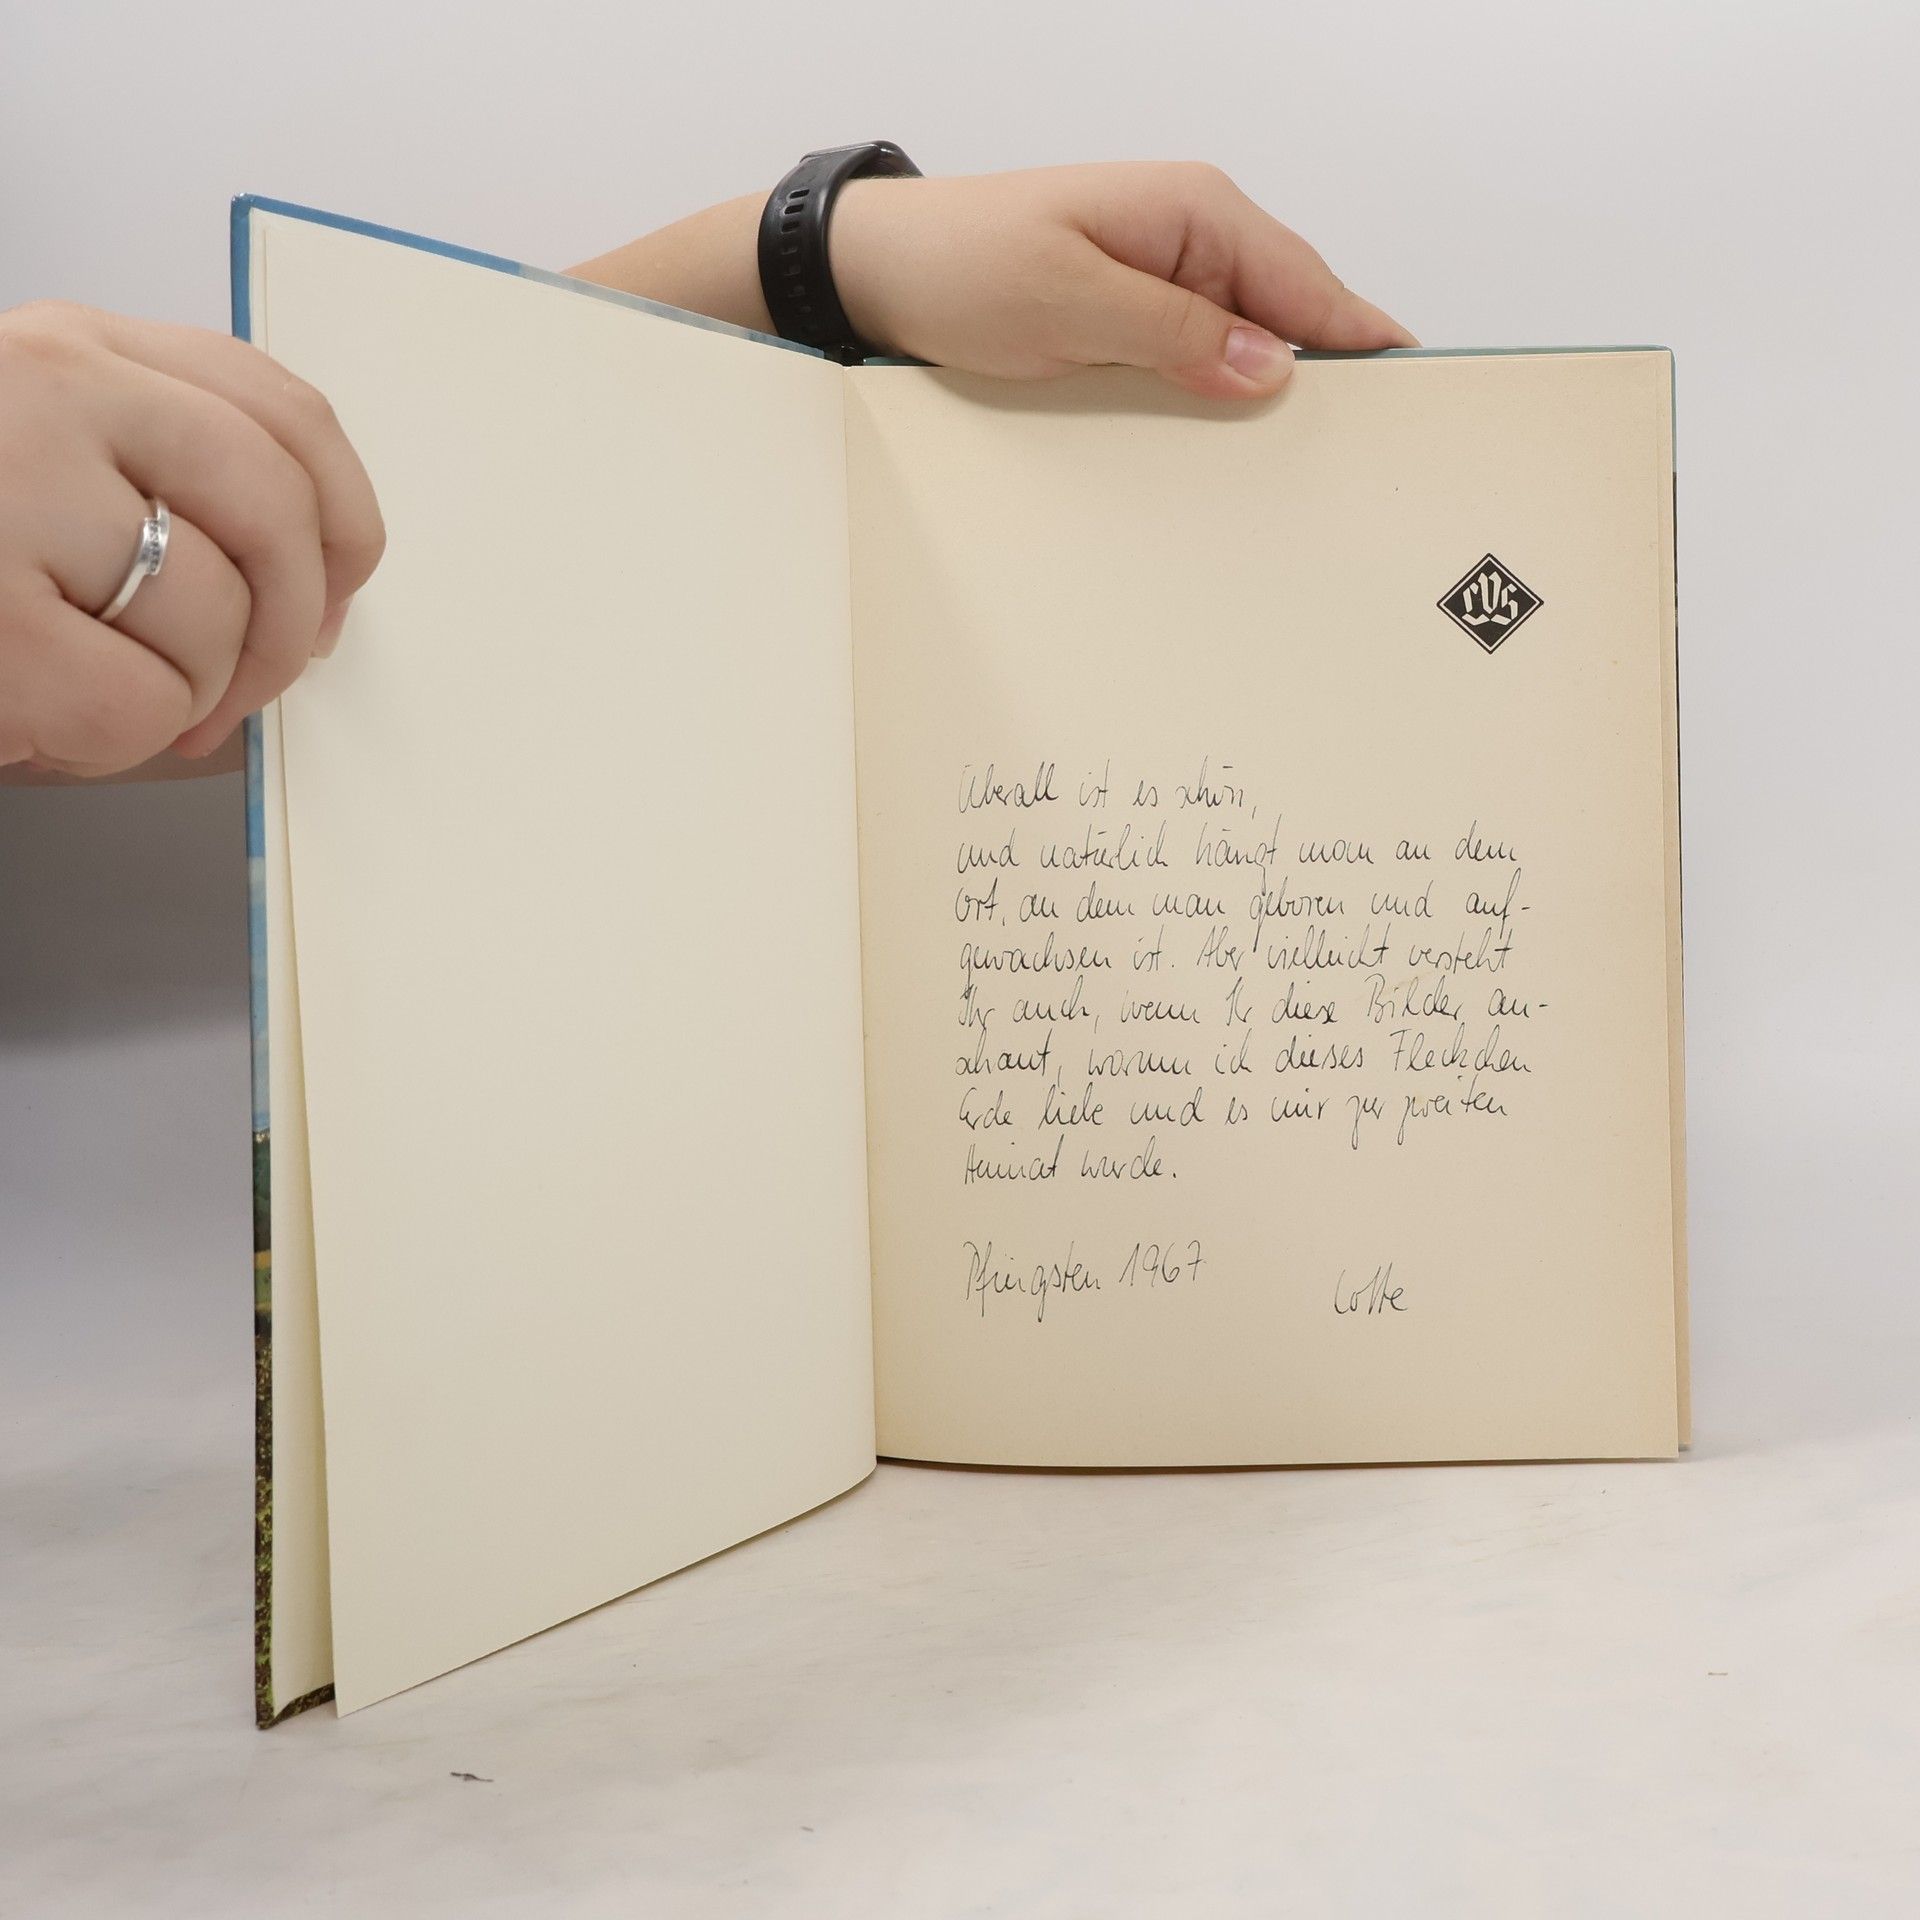 LVS
Überall ist es schön,
und natürlich hängt man an dem
Ort, an dem man geboren und auf-
gewachsen ist. Aber vielleicht versteht
Ihr auch, wenn Ihr diese Bilder an-
schaut, warum ich dieses Fleckchen
Erde liebe und es mir zur zweiten
Heimat wurde.
Pfingsten 1967
Lotte